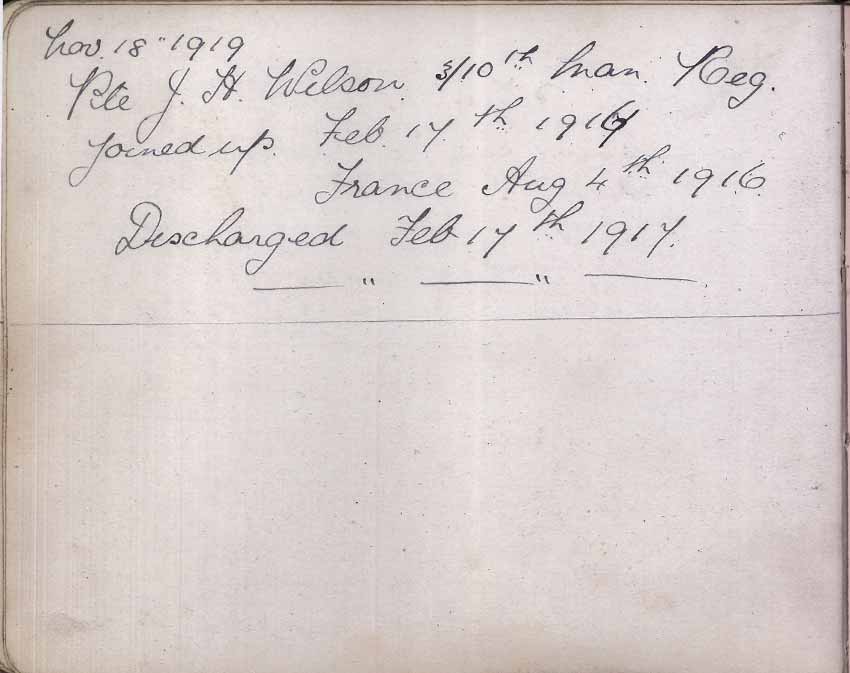 Nov. 18" 1919
Pte J. H. Wilson. 3/10th Man. Reg.
Joined up. Feb. 17th 1916
France Aug 4th 1916
Discharged Feb 17th 1917.
— " — " —